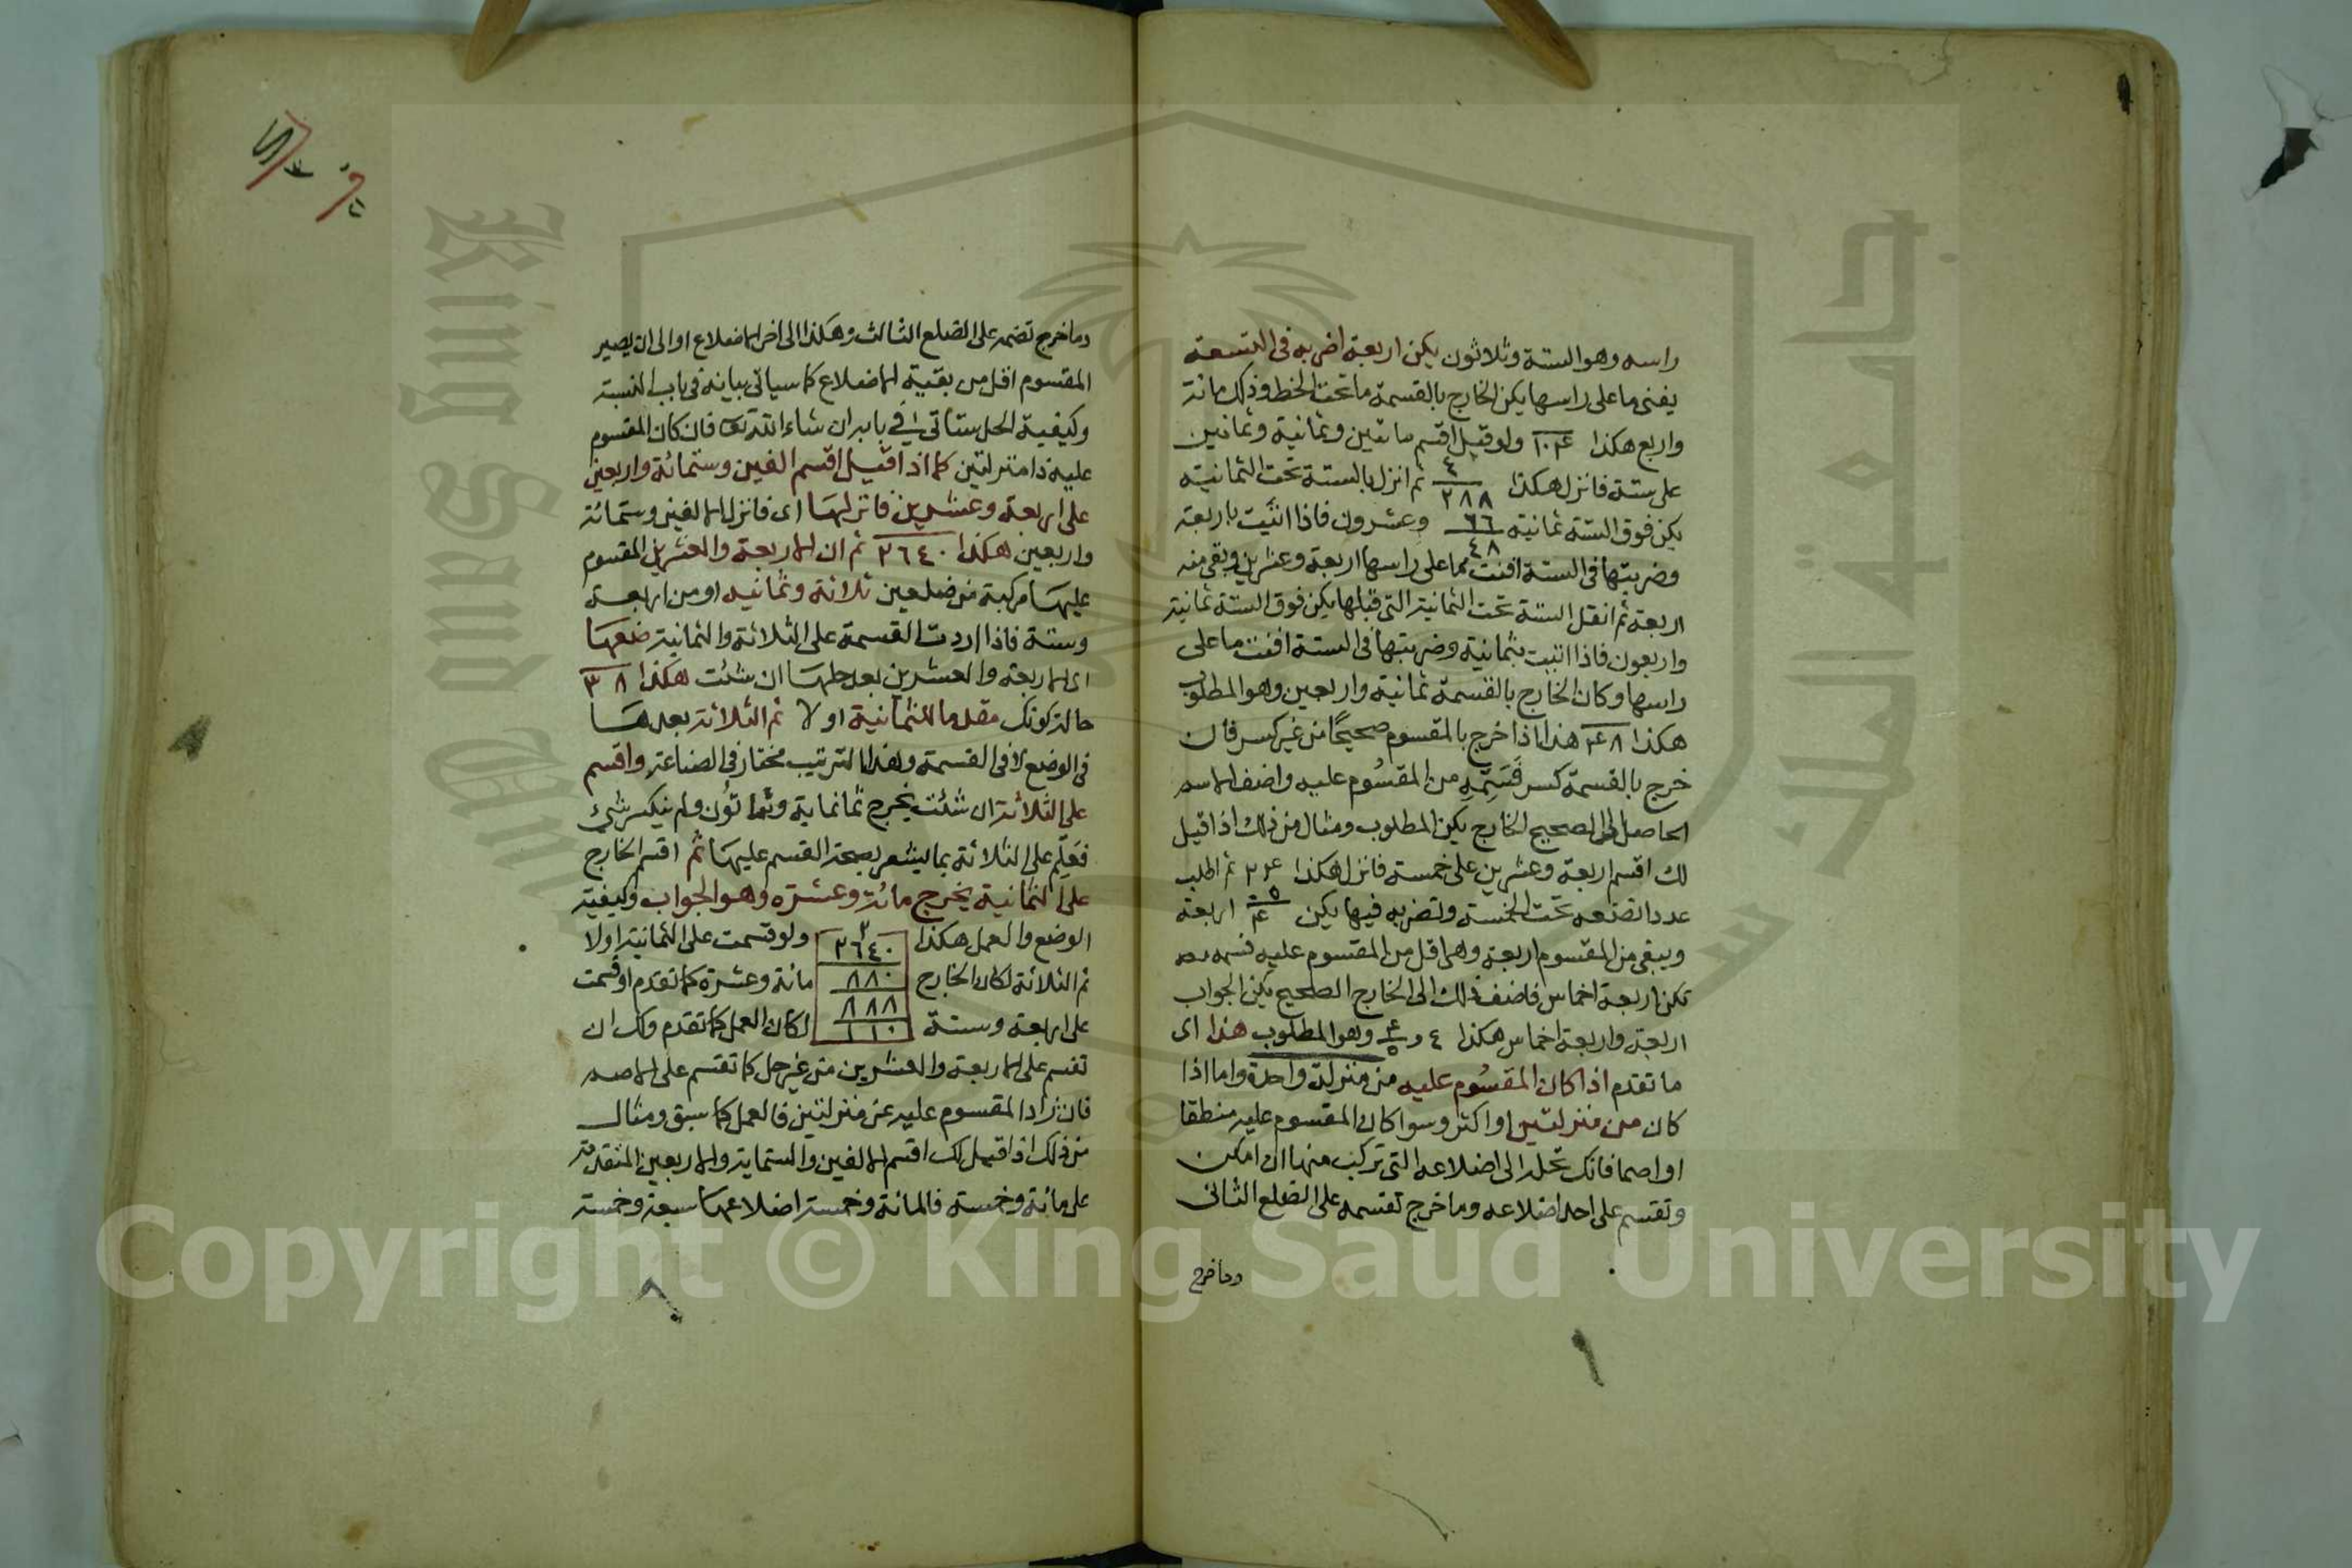 راسه وهو الستة وثلاثون يكن اربعة اضربه فى التسعة
يفنى ما على راسها يكن الخارج بالقسمة ما تحت الخط وذلك مائة
واربع هكذا ١٠٤ ولو قيل اقسم ماتين وثمانية وثمانين
على ستة فانزل هكذا ٤ ٢٨٨ ثم انزل بالستة تحت الثمانية
يكن فوق الستة ثمانية ٦٦ ٤٨ وعشرون فاذا اثبت باربعة
وضربتها فى الستة افنت مما على راسها اربعة وعشرين وبقى منه
اربعة ثم انقل الستة تحت الثمانية التى قبلها يكن فوق الستة ثمانية
واربعون فاذا اثبت بثمانية وضربتها فى الستة افنت ما على
راسها وكان الخارج بالقسمة ثمانية واربعين وهو المطلوب
هكذا ٤٨ هذا اذا خرج بالمقسوم صحيحًا من غير كسر فان
خرج بالقسمة كسر فَسَمِّهِ من المقسُوم عليه واضف الاسم
الحاصل الى الصحيح الخارج يكن المطلوب ومثال من ذلك اذا قيل
لك اقسم اربعة وعشرين على خمسة فانزل هكذا ٢٤ ثم اطلب
عددا تضعه تحت الخمسة وتضربه فيها يكن ٥ ٤ اربعة
ويبقى من المقسوم اربعة وهى اقل من المقسوم عليه فسمه
تكن اربعة اخماس فاضف ذلك الى الخارج الصحيح يكن الجواب
اربعة واربعة اخماس هكذا ٤ و ٤ ٥ وهو المطلوب هذا اى
ما تقدم اذا كان المقسُوم عليه من منزلة واحدة واما اذا
كان من منزلتين او اكثر وسوا كان المقسوم عليه منطقا
او اصما فانك تحله الى اضلاعه التى تركب منها ان امكن
وتقسم على احد اضلاعه وما خرج تقسمه على الضلع الثانى
وما خرج
وما خرج تضمه على الضلع الثالث وهكذا الى اخر الاضلاع او الى ان يصير
المقسوم اقل من بقية الاضلاع كما سياتى بيانه فى باب النسبة
وكيفية الحل ستاتى فى بابه ان شاء الله تعا فان كان المقسوم
عليه ذا منزلتين كما اذا قيل اقسم الفين وستمائة واربعين
على اربعة وعشرين فانزلها اى فانزل الالفين وستمائة
واربعين هكذا ٢٦٤٠ ثم ان الاربعة والعشرين المقسوم
عليها مركبة من ضلعين ثلاثة وثمانيه او من اربعة
وستة فاذا اردت القسمة على الثلاثة والثمانية ضعها
اى الاربعة والعشرين بعد حلها ان شئت هكذا ٣ ٨
حالة كونك مقدما للثمانية او لا ثم الثلاثة بعدها
فى الوضع لا فى القسمة وهذا الترتيب مختار فى الصناعة واقسم
على الثلاثة ان شئت يخرج ثمانماية وثماتون ولم ينكسر شئ
فَعَلِّم على الثلاثة بما يشعر بصحة القسم عليها ثم اقسم الخارج
على الثمانية يخرج مائة وعشرة وهو الجواب وكيفية
الوضع والعمل هكذا ٢ ٢٦٤٠ ولو قسمت على الثمانية اولا
ثم الثلاثة لكان الخارج ٨٨٠ مائة وعشرة كما تقدم او قسمت
على اربعة وستة ٨٨٨ ١١٠ لكان العمل كما تقدم ولك ان
تقسم على الاربعة والعشرين من غير حل كما تقسم على الاصم
فان زاد المقسوم عليه عن منزلتين فالعمل كما سبق ومثال
من ذلك اذا قيل لك اقسم الالفين والستماية والاربعين المتقدمة
على مائة وخمسة فالمائة وخمسة اضلاعها سبعة وخمسة
King Saud University
جامعة الملك سعود
Copyright © King Saud University